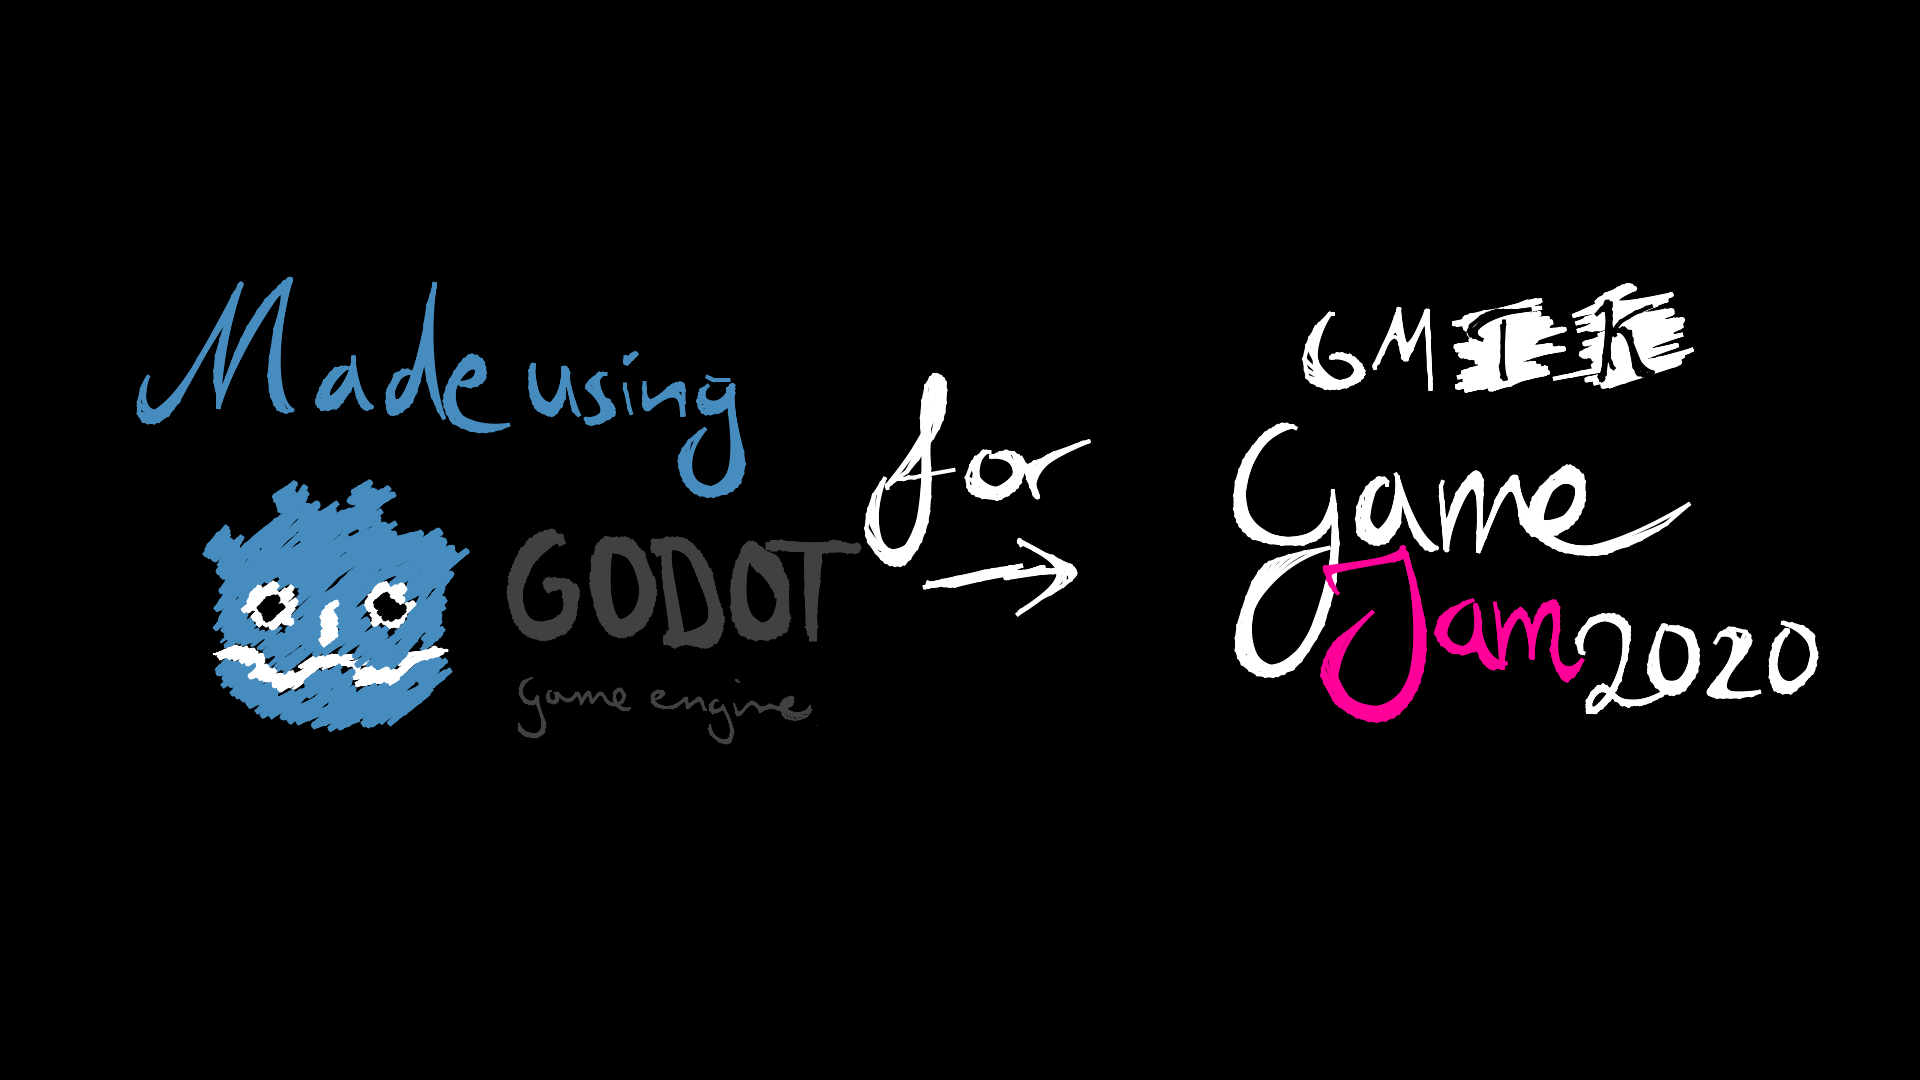 Made using
GODOT
game engine
for
GMTK
Game
Jam 2020